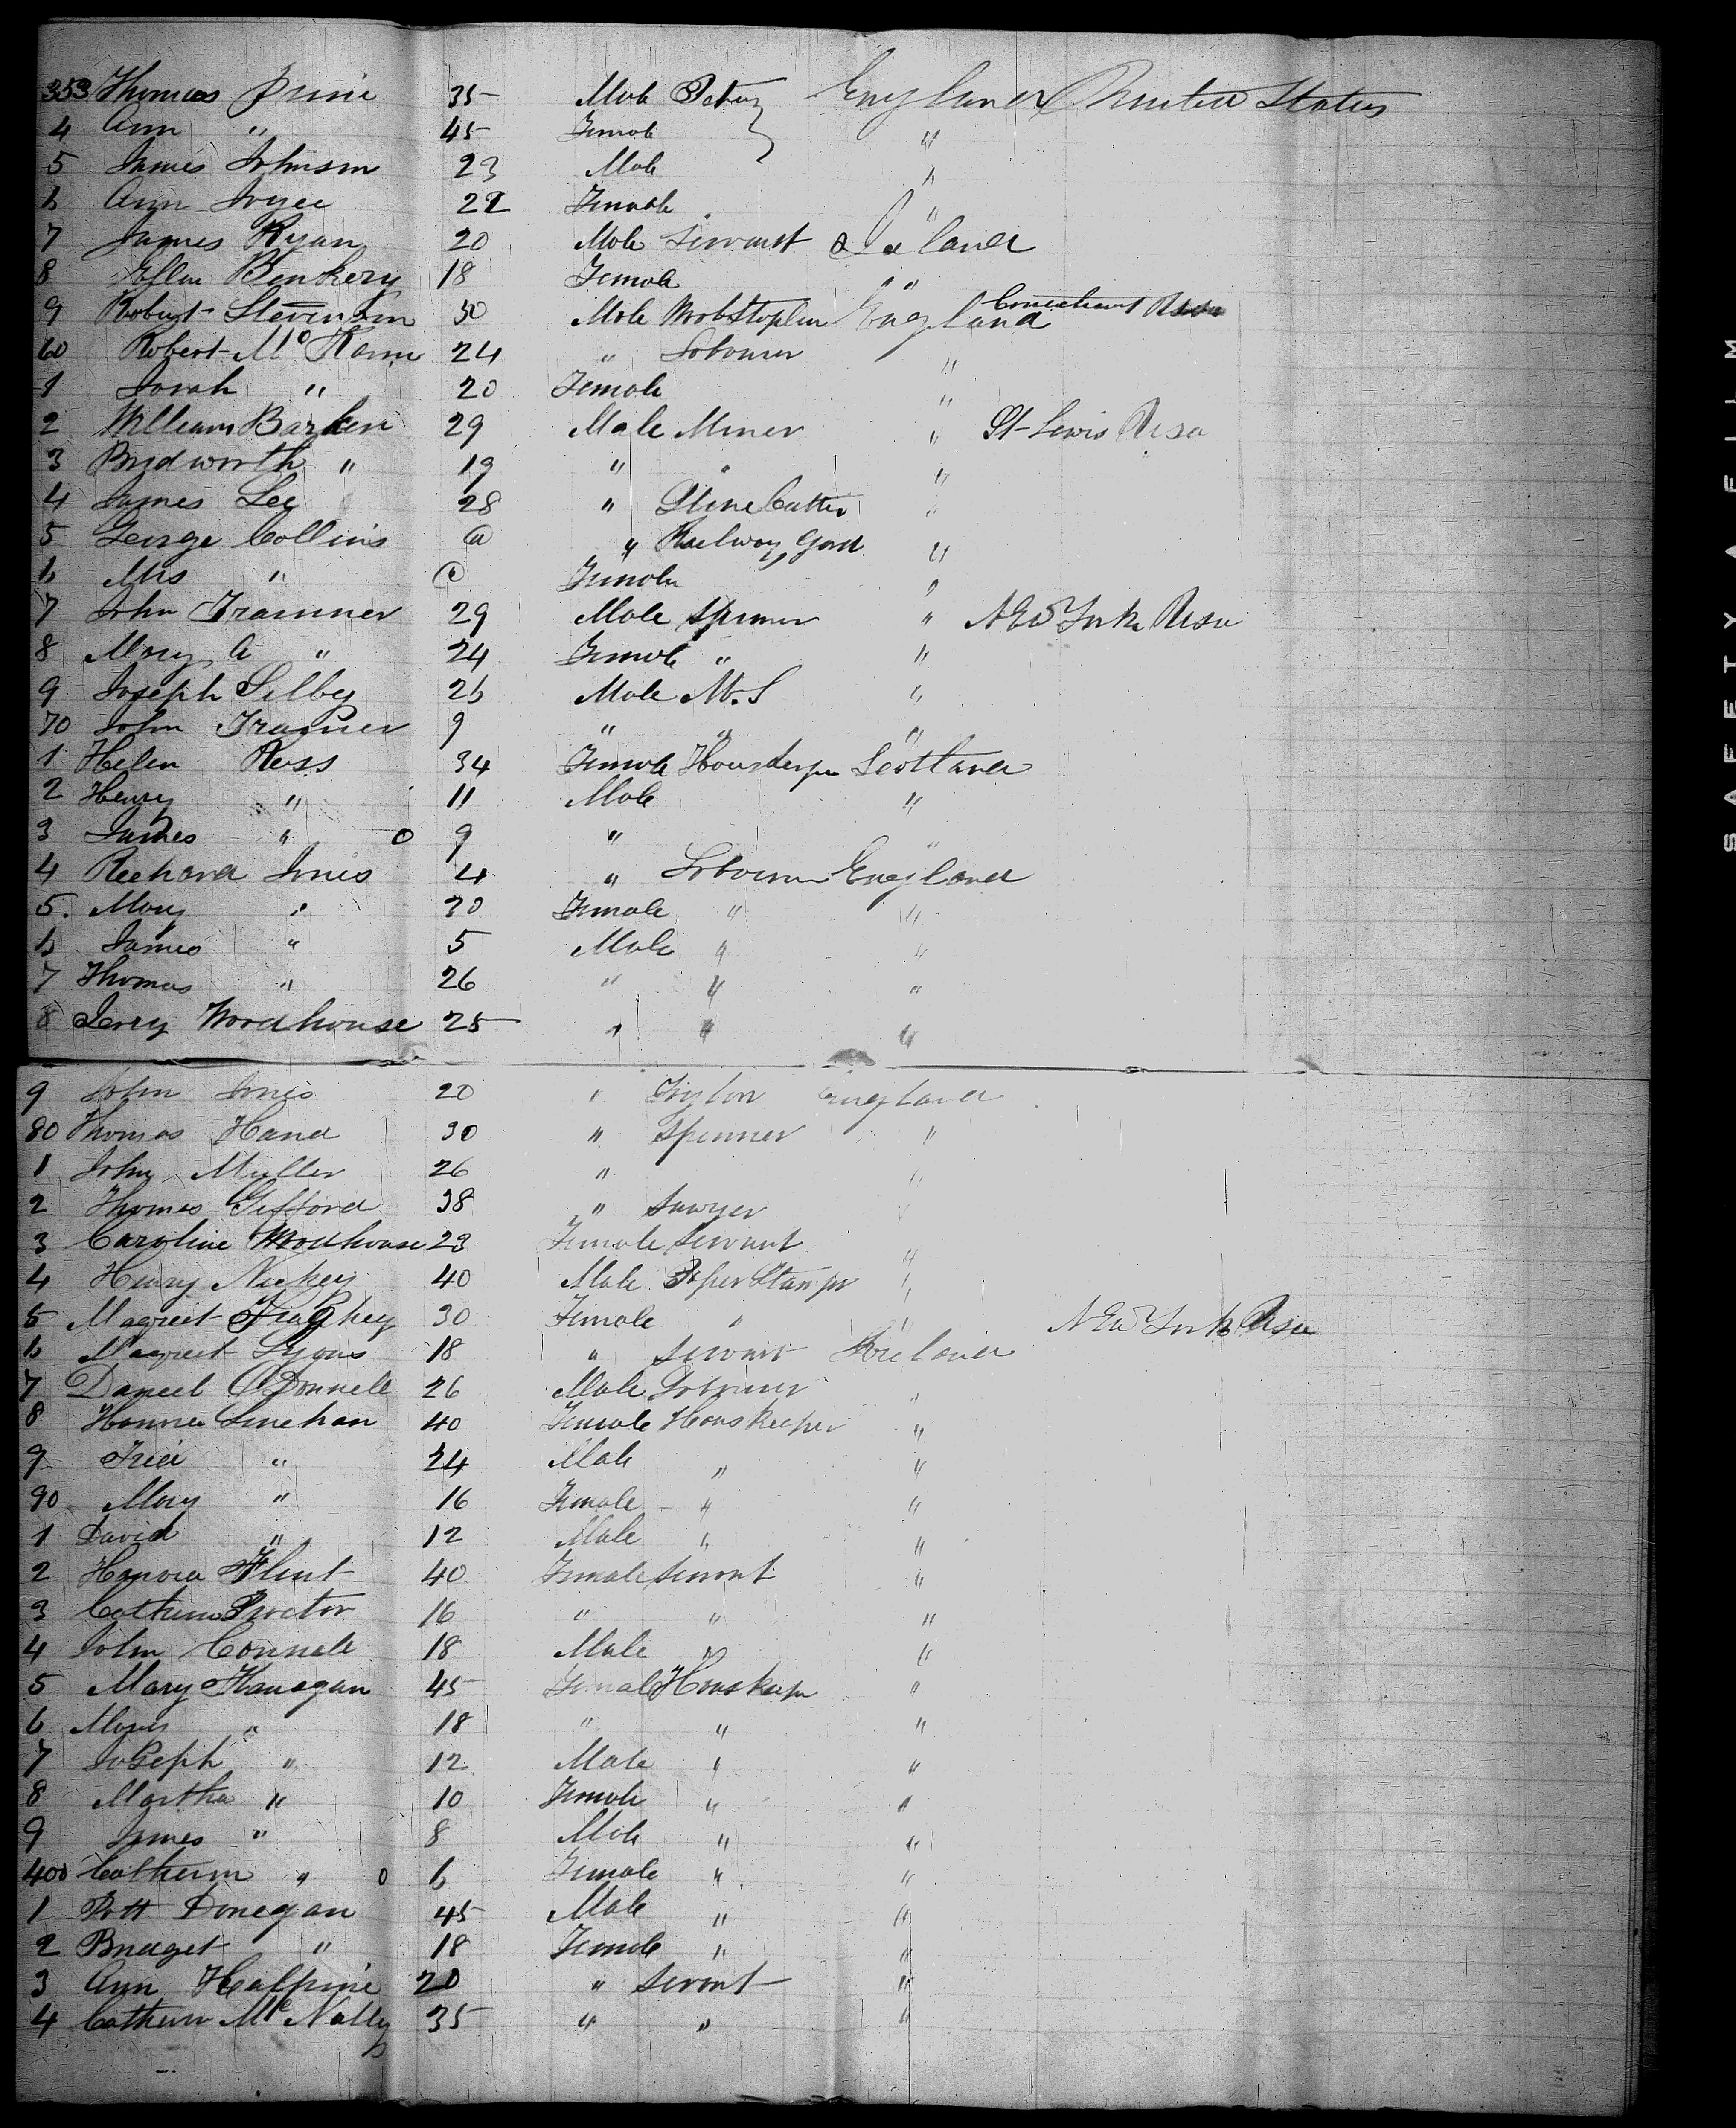 353 Thomas 35 Male England United States
4 Ann " 45 Female "
5 James Johnson 23 Male "
6 Ann Joyce 22 Female "
7 James Ryan 20 Male Servant Ireland
8 Ellen 18 Female "
9 Robert Stevenson 30 Male England
60 Robert McKann 24 " Labourer "
1 Sarah " 20 Female "
2 William Barken 29 Male Miner " St Lewis Usa
3 Bridworth " 19 " " "
4 James Lee 28 " Stone Cutter "
5 George Collins " Railway Gard "
6 Mrs " Female "
7 John Tranner 29 Male Spinner " New York Usa
8 Mary A " 24 Female " "
9 Joseph Silby 26 Male M.S "
70 John 9 " " "
1 Helen Ross 34 Female Scotland
2 Henry " 11 Male "
3 James " 0 9 " "
4 Richard Jones 4 " Labourer England
5. Mary " 30 Female " "
6 James " 5 Male " "
7 Thomas " 26 " " "
8 Jerry Woodhouse 25 " " "
9 John Jones 20 " England
80 Thomas Hand 30 " Spinner "
1 John Muller 26 " "
2 Thomas Gifford 38 " Sawyer "
3 Caroline Woodhouse 23 Female Servant "
4 Henry 40 Male Paper "
5 Magreet 30 Female " " New York Usa
6 Magreet Lyons 18 " Servant Ireland
7 Daneel O'Donnell 26 Male Labourer "
8 Linehan 40 Female Hous Keeper "
9 " 24 Male " "
90 Mary " 16 Female " "
1 David " 12 Male " "
2 Hanora Flint 40 Female Servant "
3 Cathern Proctor 16 " " "
4 John Connell 18 Male " "
5 Mary Flanagan 45 Female Houskeeper "
6 " 18 " " "
7 Joseph " 12 Male " "
8 Martha " 10 Female " "
9 James " 8 Male " "
400 Cathern " 0 6 Female " "
1 Patt Donegan 45 Male " "
2 Bridget " 18 Female " "
3 Ann Halpine 20 " Servant "
4 Cathern McNally 35 " " "
SAFETY FILM